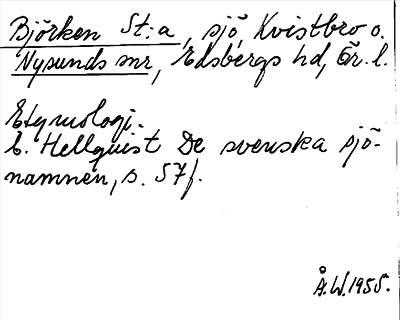 Björken St:a, sjö, Kvistbro o.
Nysunds snr, Edsbergs hd, Ör. l.
Etymologi.
E. Hellquist De svenska sjö-
namnen, s. 57f.
Å.W.1955.